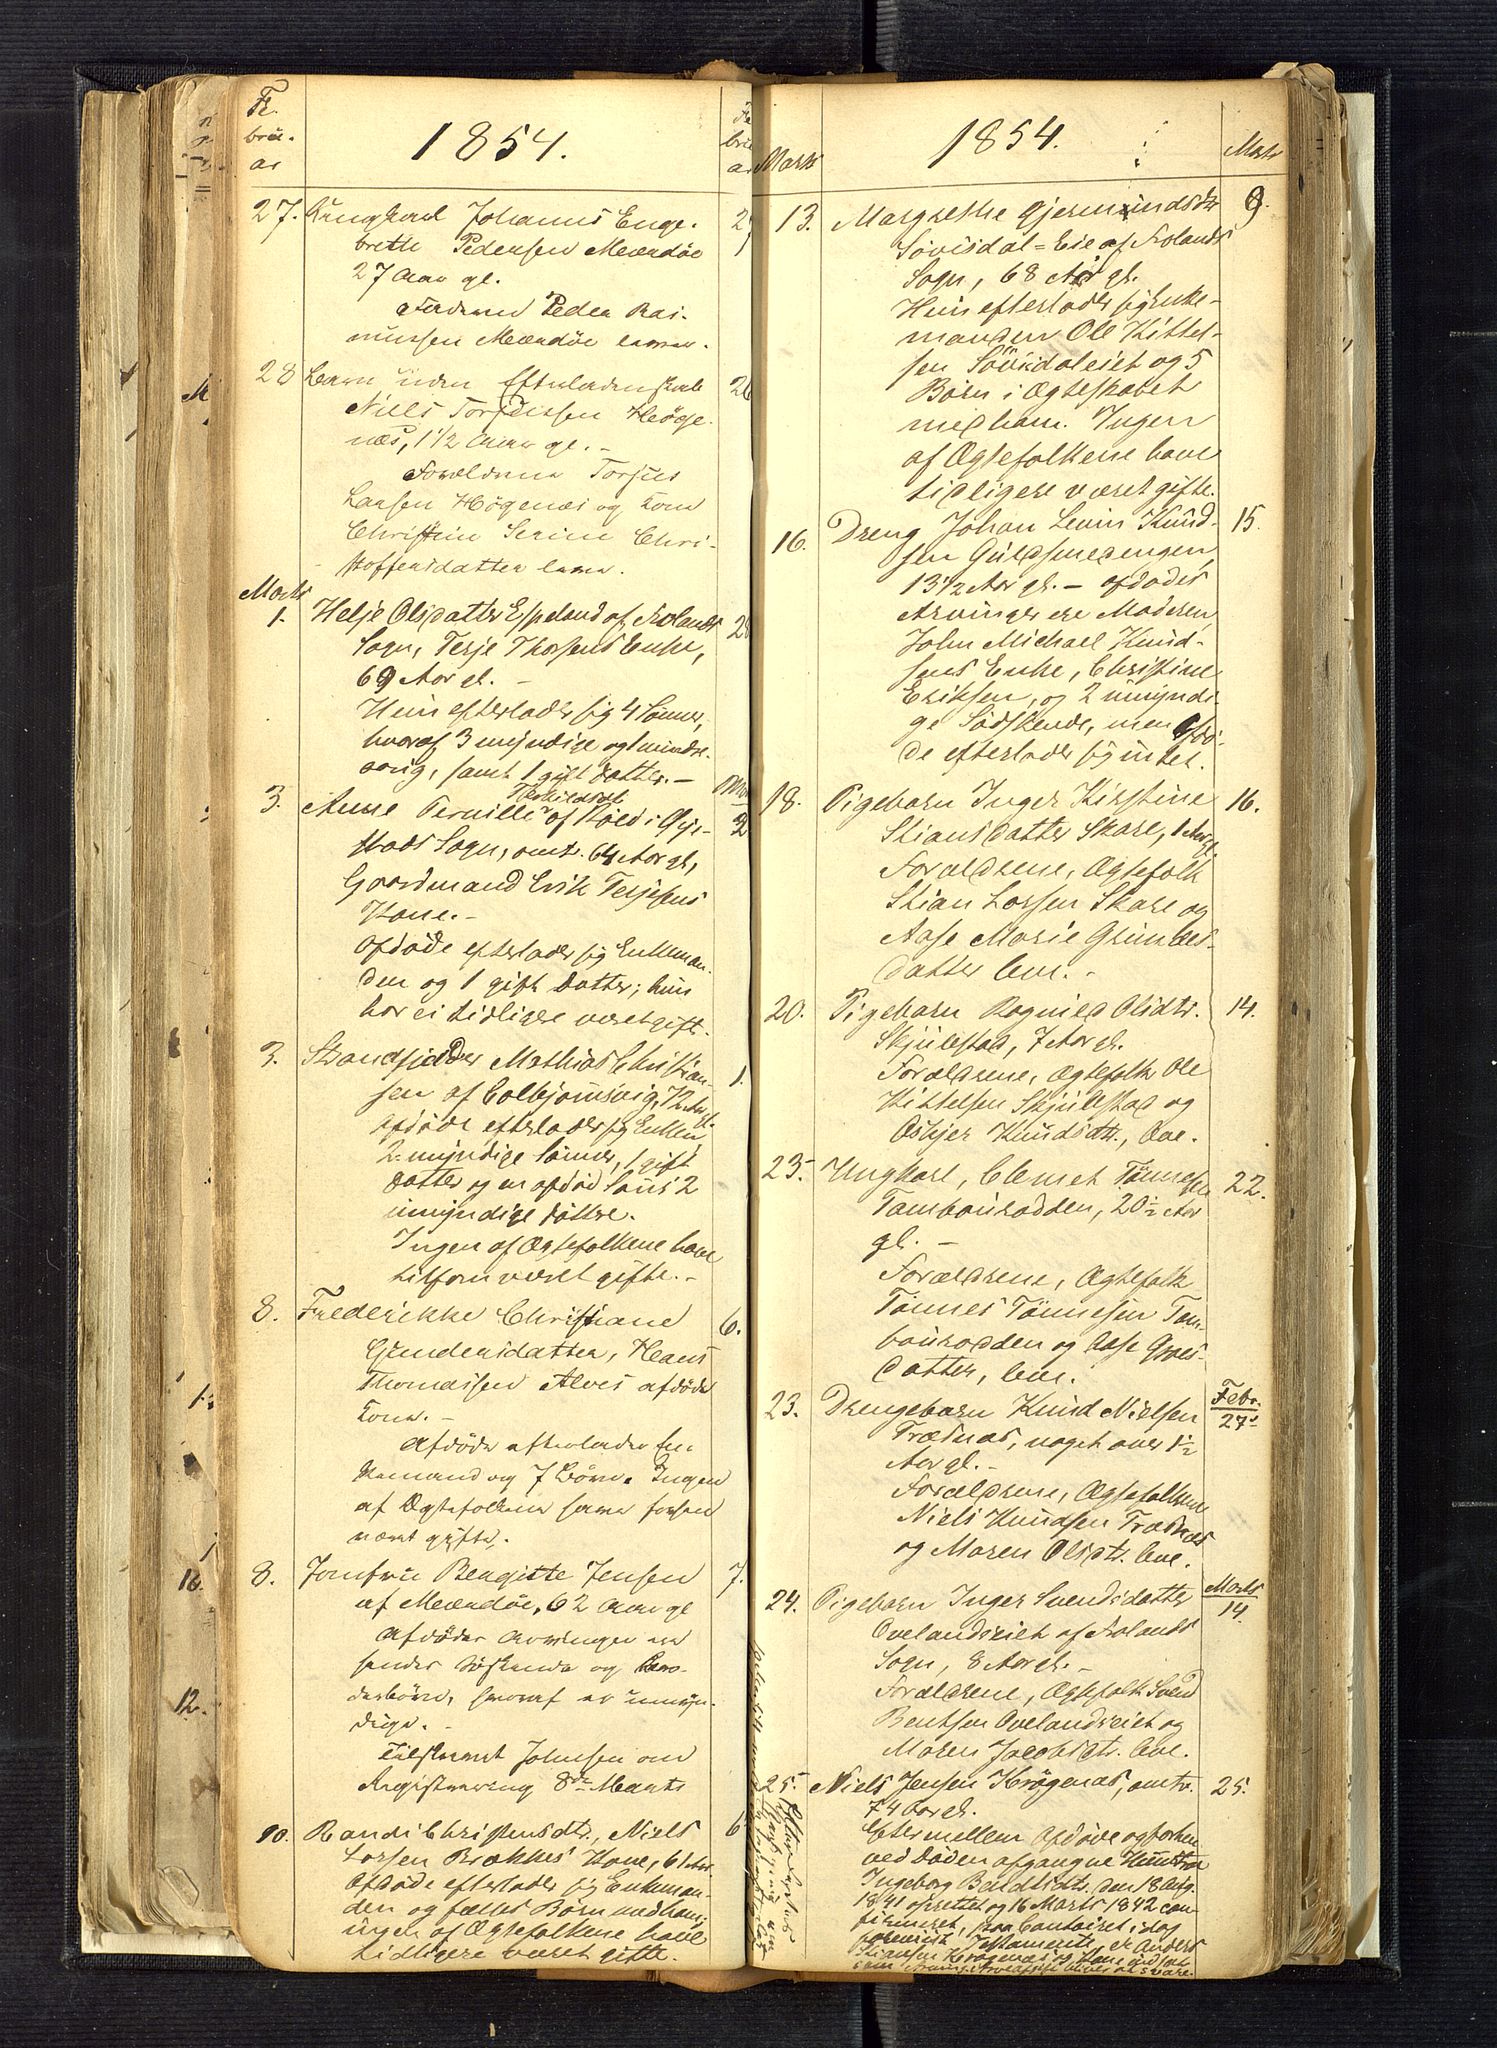 Fe.
bru-
ar
1854.
27.
Ungkarl Johannes Enge-
breth Pedersen Mærdøe
27 Aar gl.
Faderen Peder Ras-
mussen Mærdøe lever.
28
Barn uden Efterladenskab
Niels Torjussen Høge-
næs, 1 1/2 Aar gl. -
Forældrene Torjus
Larsen Høgenæs og Kone
Christine Serine Chri-
stoffersdatter leve.
26
Marts
1.
Helje Olsdatter Espeland af Frolands
Sogn, Terje Thorsens Enke,
69 Aar gl. -
Hun efterlader sig 4 Sønner,
hvoraf 3 myndige og 1 mindre-
aarig, samt 1 gift Datter. -
28
3.
Anne Pernille Terkildsdt. af Röed i Øje-
stads Sogn, omtr. 64 Aar gl.,
Gaardmand Erik Terjesens
Kone. -
Afdøde efterlader sig Enkeman-
den og 1 gift Datter; hun
har ei tidligere været gift.
2
3.
Strandsidder Mathias Christian-
sen af Colbjørnsvig, 72 Aar gl.
Afdøde efterlader sig Enken,
2 myndige Sønner, 1 gift
Datter og en afdød Søns 2
umyndige Døttre.
Ingen af Ægtefolkene have
tilforn været gifte. -
1.
8.
Frederikke Christiane
Gundersdatter, Hans
Thomassen Alves afdøde
Kone. -
Afdøde efterlader En-
kemand og 7 Børn. Ingen
af Ægtefolkene have forhen
været gifte.
6.
8.
Jomfru Bengitte Jensen
af Mærdøe, 62 Aar gl
Afdødes Arvinger ere
hendes Søskende og Bro-
derbørn, hvoraf er umyn-
dige. -
Tilskrevet Johnsen om
Registrering 8de Marts
7.
10.
Randi Christensdtr., Niels
Larsen Brekkes Kone, 61 Aar
Afdøde efterlader sig Enkeman-
den og fælles Børn med ham;
ingen af Ægtefolkene have
tidligere været gifte.
6
Marts
1854.
Marts
13.
Margrethe Gjermundsdtr
Søvisdal-Eie af Frolands
Sogn, 68 Aar gl.
Hun efterlader sig Enke-
manden Ole Kittel-
sen Søvisdaleiet og 5
Børn i Ægteskabet
med ham. Ingen
af Ægtefolkene have
tidligere været gifte.
9.
16.
Dreng Johan Levin Knud-
sen Guldsmedengen,
13 1/2 Aar gl. - Afdødes
Arvinger ere Moderen
John Michael Knud-
sens Enke, Christine
Eriksen, og 2 umyndi-
ge Sødskende, men Afdø-
de efterlader sig intet.
15.
18.
Pigebarn Inger Kirstine
Stiansdatter Skare, 1 Aar gl.
Forældrene, Ægtefolk
Stian Larsen Skare og
Aase Marie Grundes-
datter leve. -
16.
20.
Pigebarn Ragnild Olsdtr.
Skjulestad, 7 Aar gl.
Forældrene, Ægtefolk Ole
Kittelsen Skjulestad og
Asbjer Knudsdtr., leve.
14.
23.
Ungkarl, Clemet Tønnesen
Tambouroden, 20 1/2 Aar
gl. -
Forældrene, Ægtefolk
Tønnes Tønnesen Tam-
bourodden og Aase Groes-
datter, leve.
22.
23.
Drengebarn Knud Nielsen
Trædnæs, noget over 1/2
Aar gl. -
Forældrene, Ægtefolkene
Niels Knudsen Trædnæs
og Maren Olsdtr. leve.
Febr.
27
24.
Pigebarn Inger Svendsdatter
Ovelandseiet af Frolands
Sogn, 8 Aar gl. -
Forældrene, Ægtefolk Svend
Bentsen Ovelandseiet og
Maren Jacobsdtr. leve.
Marts
14.
25.
Niels Jensen Krøgenæs, omtr.
74 Aar gl.
Efter mellem Afdøde og forhen
ved Døden afgangne Hustru
Ingeborg Bendtsdtr. den 18 Aug.
1841 oprettet og 16 Marts 1842 con-
firmeret, paa Contoiret idag
foreviist Testamente, er Anders
Stiansen Krøgenæs og Kone
25.